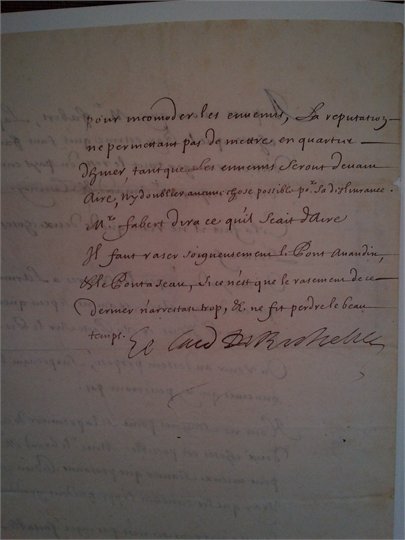 pour incōmoder les ennemis, La reputation
ne permettant pas de mettre en quartier
d'hiver tant que les ennemis seront devant
Aire, ny d'oublier aucune chose possible pr sa délivrance.
Mr. fabert dira ce qu'il scait d'Aire
Il faut raser soigneusement le Pont Avandin,
&le Pont a Seau, si ce n'est que le rasement de ce
dernier n'arrestast trop, & ne fit perdre le beau
temps. Le Card De Richelieu